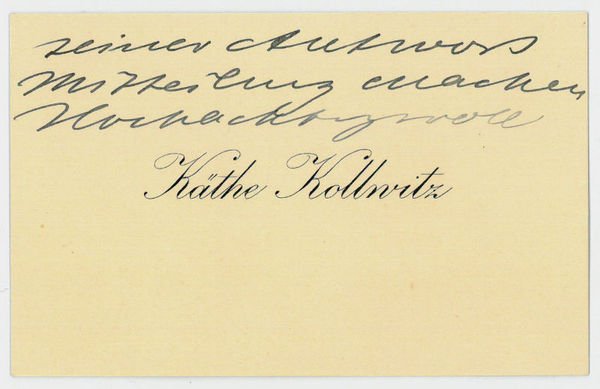 seiner Antwort
Mitteilung machen
Hochachtungsvoll
Käthe Kollwitz